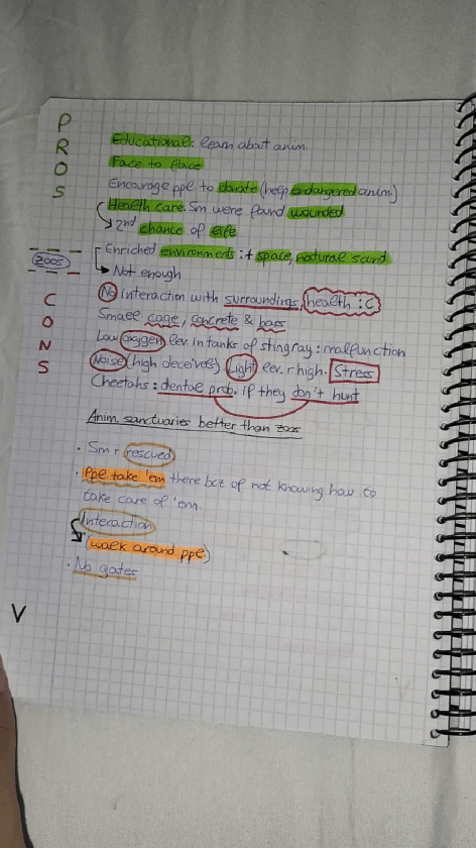 PROS
Educational: learn about anim.
Face to face
Encourage ppl to donate (help endangered anim.)
Health care. Sm were found wounded
2nd chance of life
Enriched environments: + space, natural sand
Zoos
Not enough
CONS
No interaction with surroundings, health :C
Small cage, concrete & bars
Low oxygen lev. in tanks of stingray: malfunction
Noise (high decibels) Light lev. r high. Stress
Cheetahs: dental prob. if they don't hunt
Anim. sanctuaries better than zoos
· Sm r rescued
· Ppl take 'em there bcz of not knowing how to
take care of 'em.
· Interaction
(walk around ppl)
· No gates
V